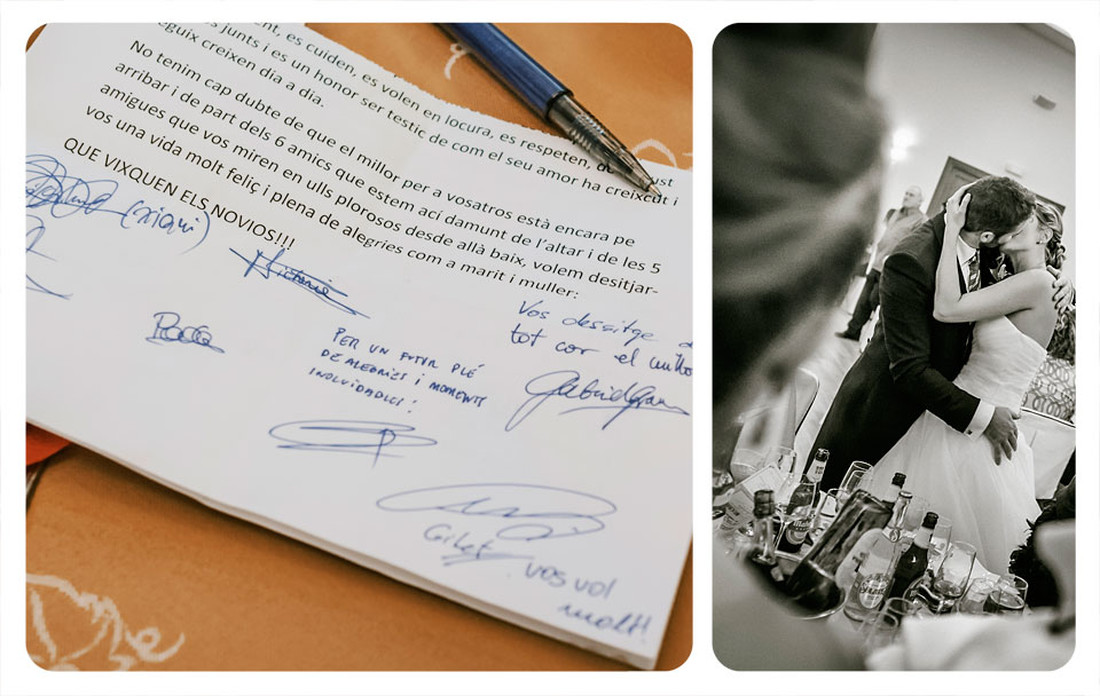 ent, es cuiden, es volen en locura, es respeten, ust
s junts i es un honor ser testic de com el seu amor ha creixcut i
eguix creixen dia a dia.
No tenim cap dubte de que el millor per a vosatros està encara pe
arribar i de part dels 6 amics que estem ací damunt de l'altar i de les 5
amigues que vos miren en ulls plorosos desde allà baix, volem desitjar-
vos una vida molt feliç i plena de alegries com a marit i muller:
QUE VIXQUEN ELS NOVIOS!!!
(xiqui)
Vos dessitge
tot cor el
PER UN FUTUR PLÉ
DE ALEGRIES I MOMENTS
INOLVIDABLES!
Gilet
vos vol
molt!